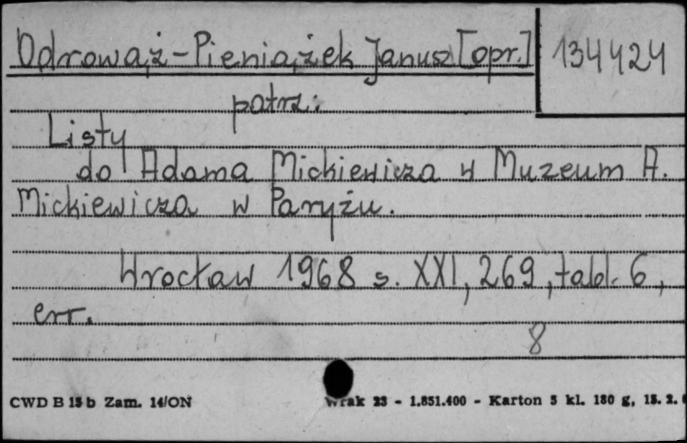 Odrowąż-Pieniążek Janusz [opr.] 134424
patrz:
Listy
do Adama Mickiewicza w Muzeum A.
Mickiewicza w Paryżu.
Wrocław 1968 s. XXI, 269, tabl. 6,
err.
8
CWD B 15 b Zam. 14/ON Wrak 23 - 1.851.400 - Karton 5 kl. 180 g, 15. 2.